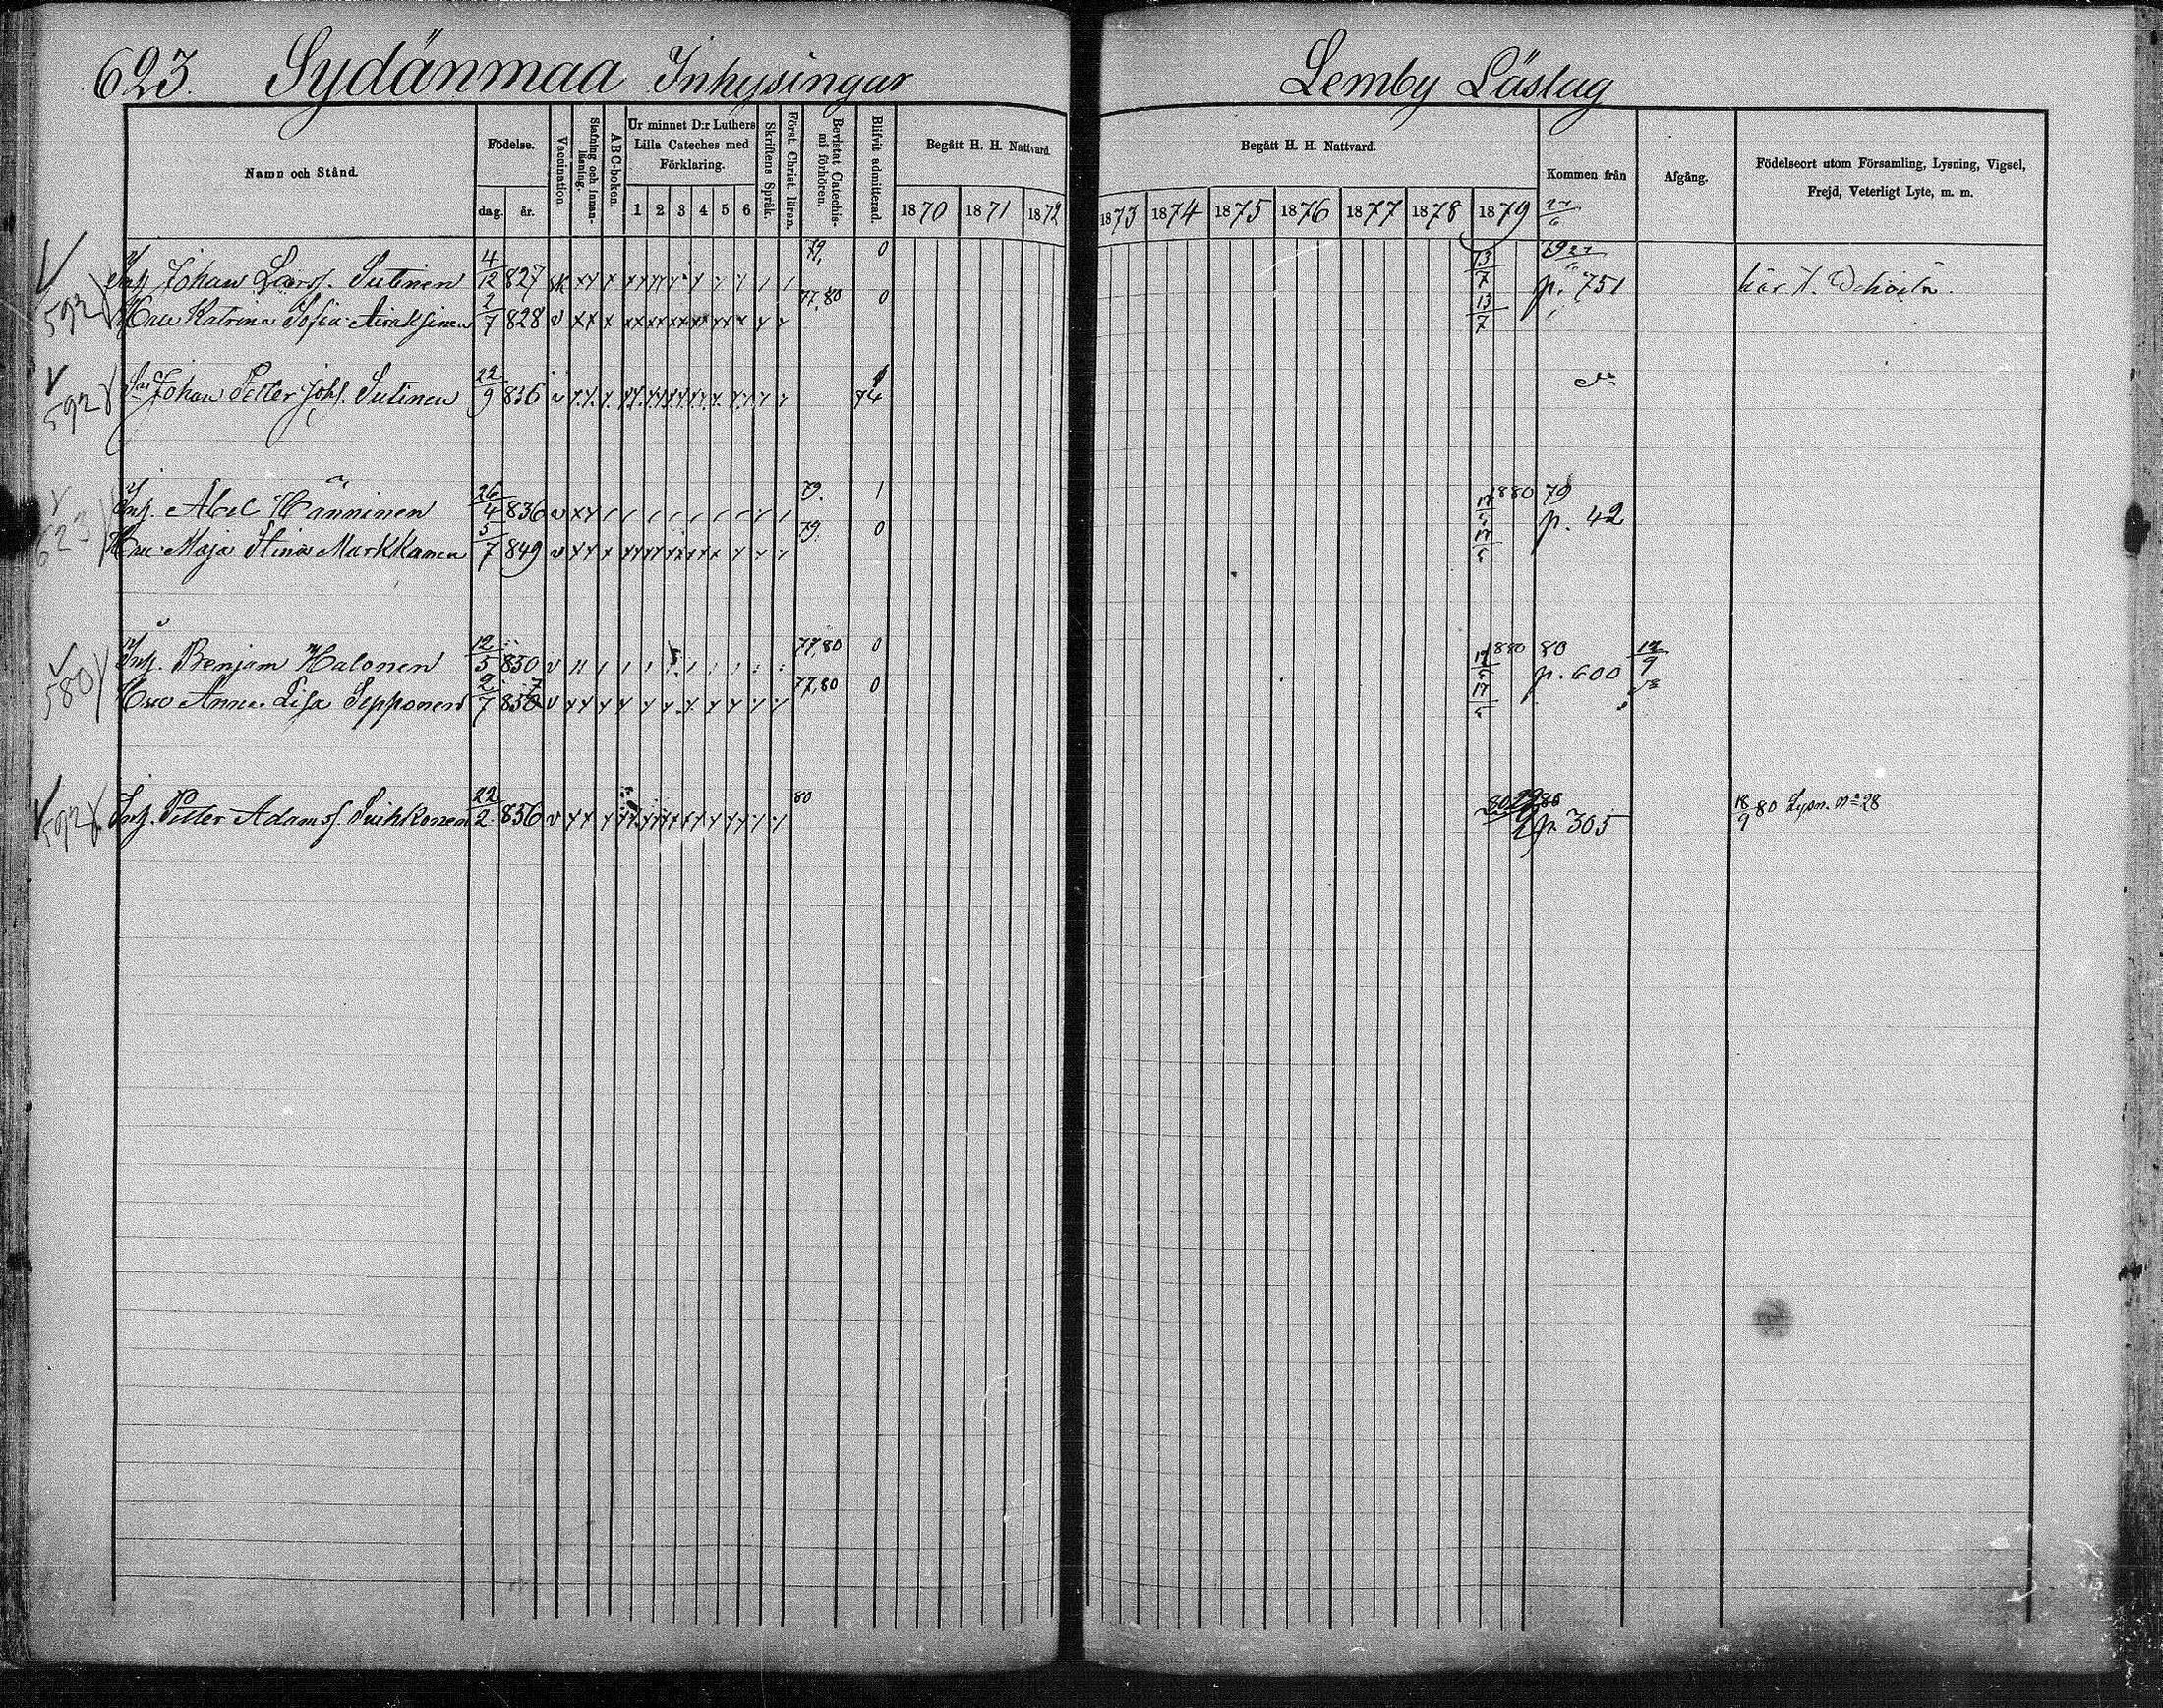 623. Sydänmaa Inhysingar Lemby Läslag
Namn och Stånd.
Födelse.
dag. år.
Vaccination.
Stafning och Innan-läsning.
ABC-boken.
Ur minnet D:r Luthers Lilla Cateches med Förklaring.
1 2 3 4 5 6
Skriftens Språk.
Först. Christ. läran.
Bevistat Catechis-mi förhören.
Blifvit admitterad.
Begått H. H. Nattvard.
1870 1871 1872
Begått H. H. Nattvard.
1873 1874 1875 1876 1877 1878 1879
Kommen från
Afgång.
Födelseort utom Församling, Lysning, Vigsel, Frejd, Veterligt Lyte, m. m.
Inh. Johan Larss. Sutinen 4/12 827 79. 0 13/7 p. 751
592 Hru Katrina Sofia Airaksinen 2/7 828 v 77, 80 0 13/7
592 Johan Petter Johs. Sutinen 22/9 836 v 74
Inh. Abel Hänninen 26/4 836 v 79. 1 1880 79 p. 42
623 Hru Maja Stina Markkanen 5/7 849 v 79. 0
580 Inh. Benjam Halonen 12/5 850 v 77, 80 0 1880 80 p. 600 12/9
Hru Anna Lisa Sepponen 2/7 850 v 77, 80 0
592 Inh. Petter Adamss. Puhkonen 22/2 856 v 80 80 p. 305 18/9 80 Lysn. No 28